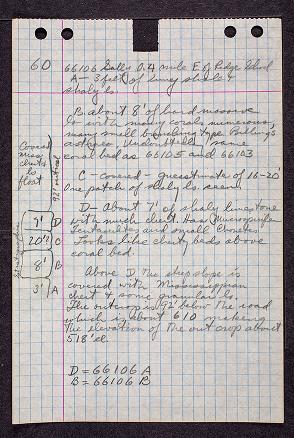 60
66106 Gully 0.4 mile E of Ridge School
A - 3 feet of limey shale &
shaly ls.
B. about 8' of hard massive
ls with many corals numerous,
many small branching type
same
coral bed as 66105 and 66103
C - covered - guestimate of 16-20
One patch of shaly ls. seen
D - About 7' of shaly limestone
with much chert. Has
and small Chonetes
Looks like cherty beds above
coral bed.
Above D the steep slope is
covered with Mississippian
chert & some granular ls.
The outcrop is 92' below the road
which is about 610 making
the elevation of the outcrop about
518' el.
D = 66106 A
B = 66106 B
Covered
miss
cherts
ls
float
92'
7' D
20'? C
8' B
3' A